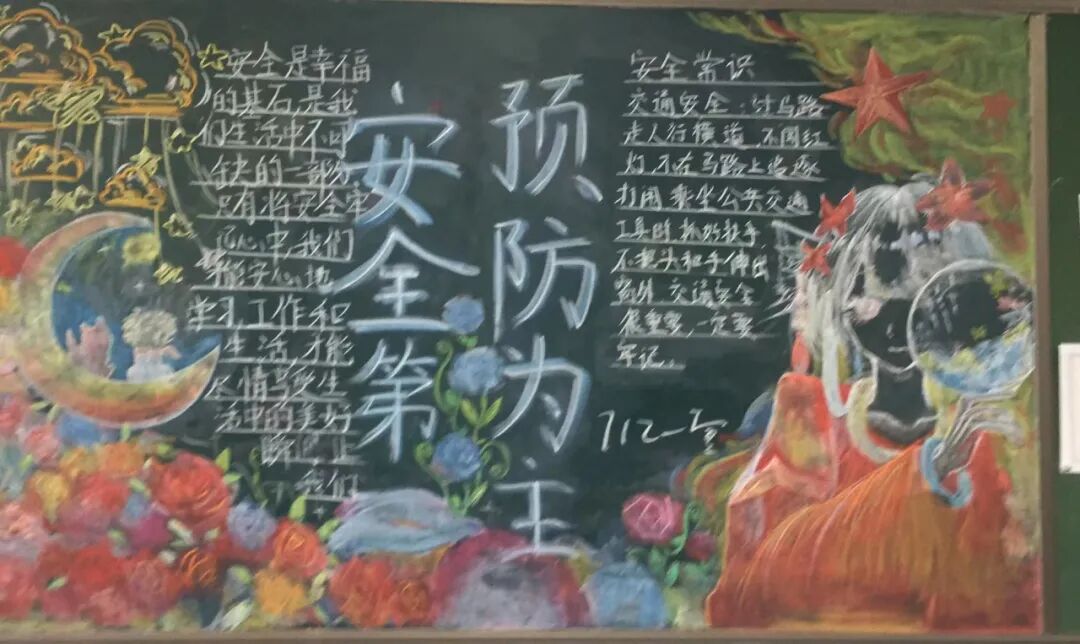 安全是幸福
的基石,是我
们生活中不可
缺的一部分
只有将安全牢
记心中,我们
才能安心地
学习工作和
生活,才能
尽情享受生
活中的美好
我们
安全第一
预防为主
安全常识
交通安全:过马路
走人行横道,不闯红
灯,不在马路上追逐
打闹,乘坐公共交通
工具时,抓好扶手,
不把头和手伸出
窗外,交通安全
很重要,一定要
牢记。
712